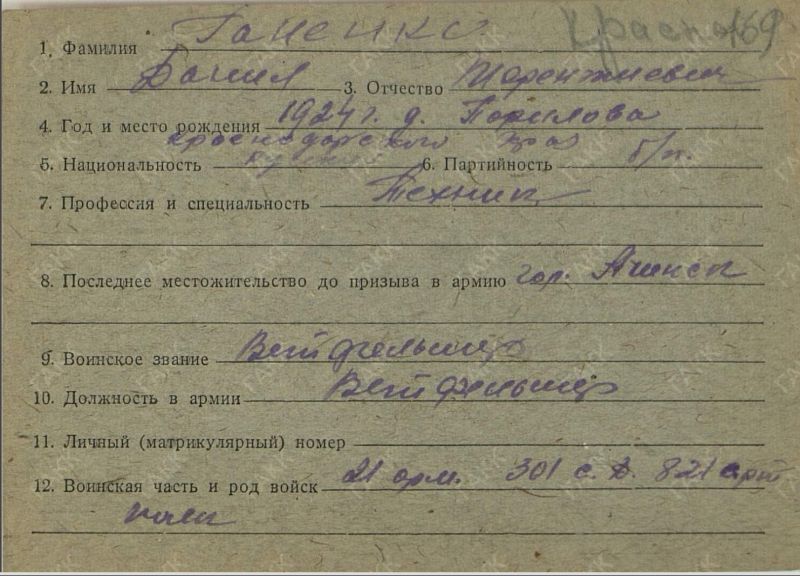 1. Фамилия Ганенко Красно 169
2. Имя Данил 3. Отчество
4. Год и место рождения 1924 г. д.
Краснодарского края
5. Национальность русский 6. Партийность б/п.
7. Профессия и специальность Техник
8. Последнее местожительство до призыва в армию гор. Ачинск
9. Воинское звание Ветфельшер
10. Должность в армии Ветфельшер
11. Личный (матрикулярный) номер
12. Воинская часть и род войск 21 арм. 301 с. д. 821 арт
полк